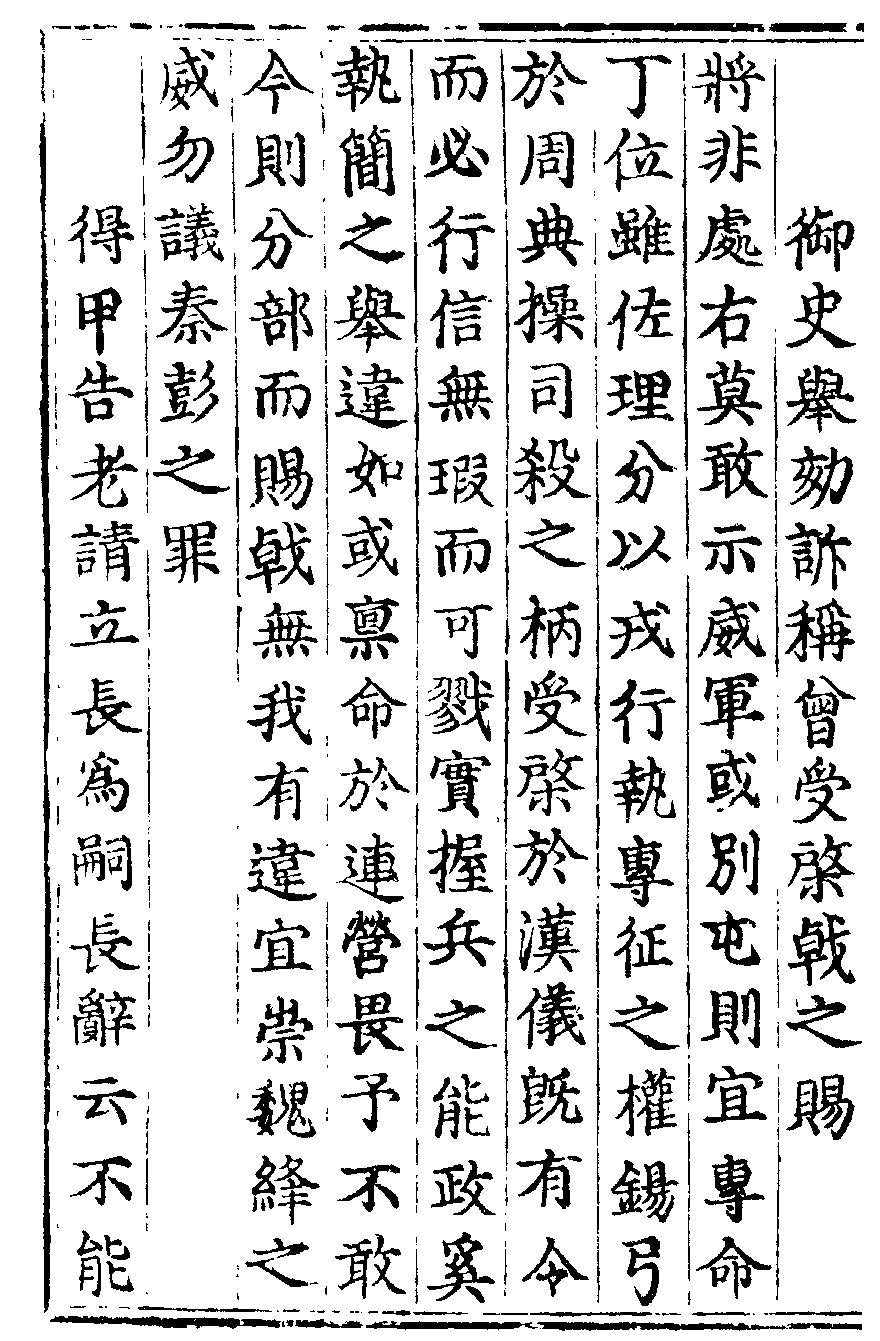 御史舉劾訴稱曾受棨戟之賜
將非處右莫敢示威軍或別屯則宜專命
丁位雖佐理分以戎行執專征之權錫弓
於周典操司殺之柄受棨於漢儀旣有令
而必行信無瑕而可戮實握兵之能政奚
執簡之舉違如或禀命於連營畏予不敢
今則分部而賜戟無我有違宜崇魏絳之
威勿議秦彭之罪
得甲告老請立長爲嗣長辭云不能